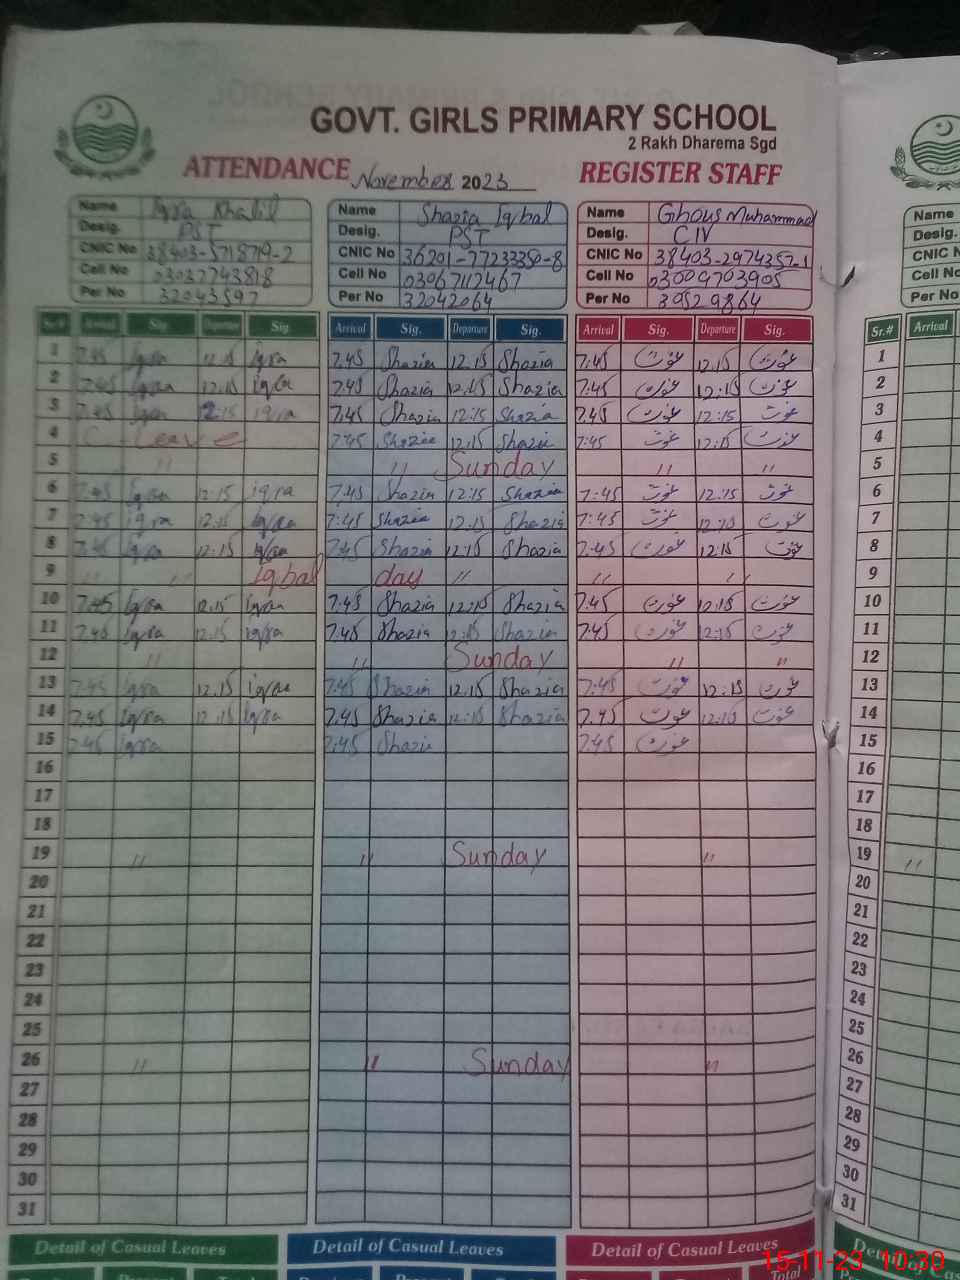 GOVT. GIRLS PRIMARY SCHOOL
2 Rakh Dharema Sgd
ATTENDANCE November 2023 REGISTER STAFF
Name Iqra Khalil Name Shazia Iqbal Name Ghous Muhammad Name
Desig. PST Desig. PST Desig. CIV Desig.
CNIC No 38403-5718719-2 CNIC No 36201-7723330-8 CNIC No 38403-2974357-1 CNIC N
Cell No 03037743818 Cell No 03067112467 Cell No 03009703905 Cell No
Per No 32043597 Per No 32042064 Per No 30529864 Per No
Sr.# Arrival Sig. Departure Sig. Arrival Sig. Departure Sig. Arrival Sig. Departure Sig. Sr.# Arrival
1 7.45 Iqra 12.15 Iqra 7.45 Shazia 12.15 Shazia 7.45 غوث 12.15 غوث 1
2 7.45 Iqra 12.15 iqra 7.45 Shazia 12.15 Shazia 7.45 غوث 12:15 غوث 2
3 7.45 Iqra 12:15 iqra 7.45 Shazia 12:15 Shazia 7.45 غوث 12:15 غوث 3
4 C - Leave 7:45 Shazia 12.15 Shazia 7:45 غوث 12:15 غوث 4
5 " " Sunday " " 5
6 7.45 Iqra 12:15 iqra 7.45 Shazia 12:15 Shazia 7:45 غوث 12:15 غوث 6
7 7.45 iqra 12.15 Iqra 7:45 Shazia 12:15 Shazia 7:45 غوث 12:15 غوث 7
8 7.45 Iqra 12:15 Iqra 7:45 Shazia 12:15 Shazia 7:45 غوث 12:15 غوث 8
9 " " Iqbal day " " " 9
10 7.45 Iqra 12.15 Iqra 7:45 Shazia 12:15 Shazia 7.45 غوث 12:15 غوث 10
11 7.45 Iqra 12:15 iqra 7.45 Shazia 12:15 Shazia 7:45 غوث 12:15 غوث 11
12 " " Sunday " " 12
13 7.45 Iqra 12.15 iqra 7.45 Shazia 12.15 Shazia 7:45 غوث 12:15 غوث 13
14 7.45 Iqra 12:15 Iqra 7.45 Shazia 12:15 Shazia 7.45 غوث 12:15 غوث 14
15 7.45 Iqra 7:45 Shazi 7:45 غوث 15
16 16
17 17
18 18
19 " " Sunday " 19 "
20 20
21 21
22 22
23 23
24 24
25 25
26 " " Sunday " 26
27 27
28 28
29 29
30 30
31 31
Detail of Casual Leaves Detail of Casual Leaves Detail of Casual Leaves Detail of
Total
15-11-23 10:30